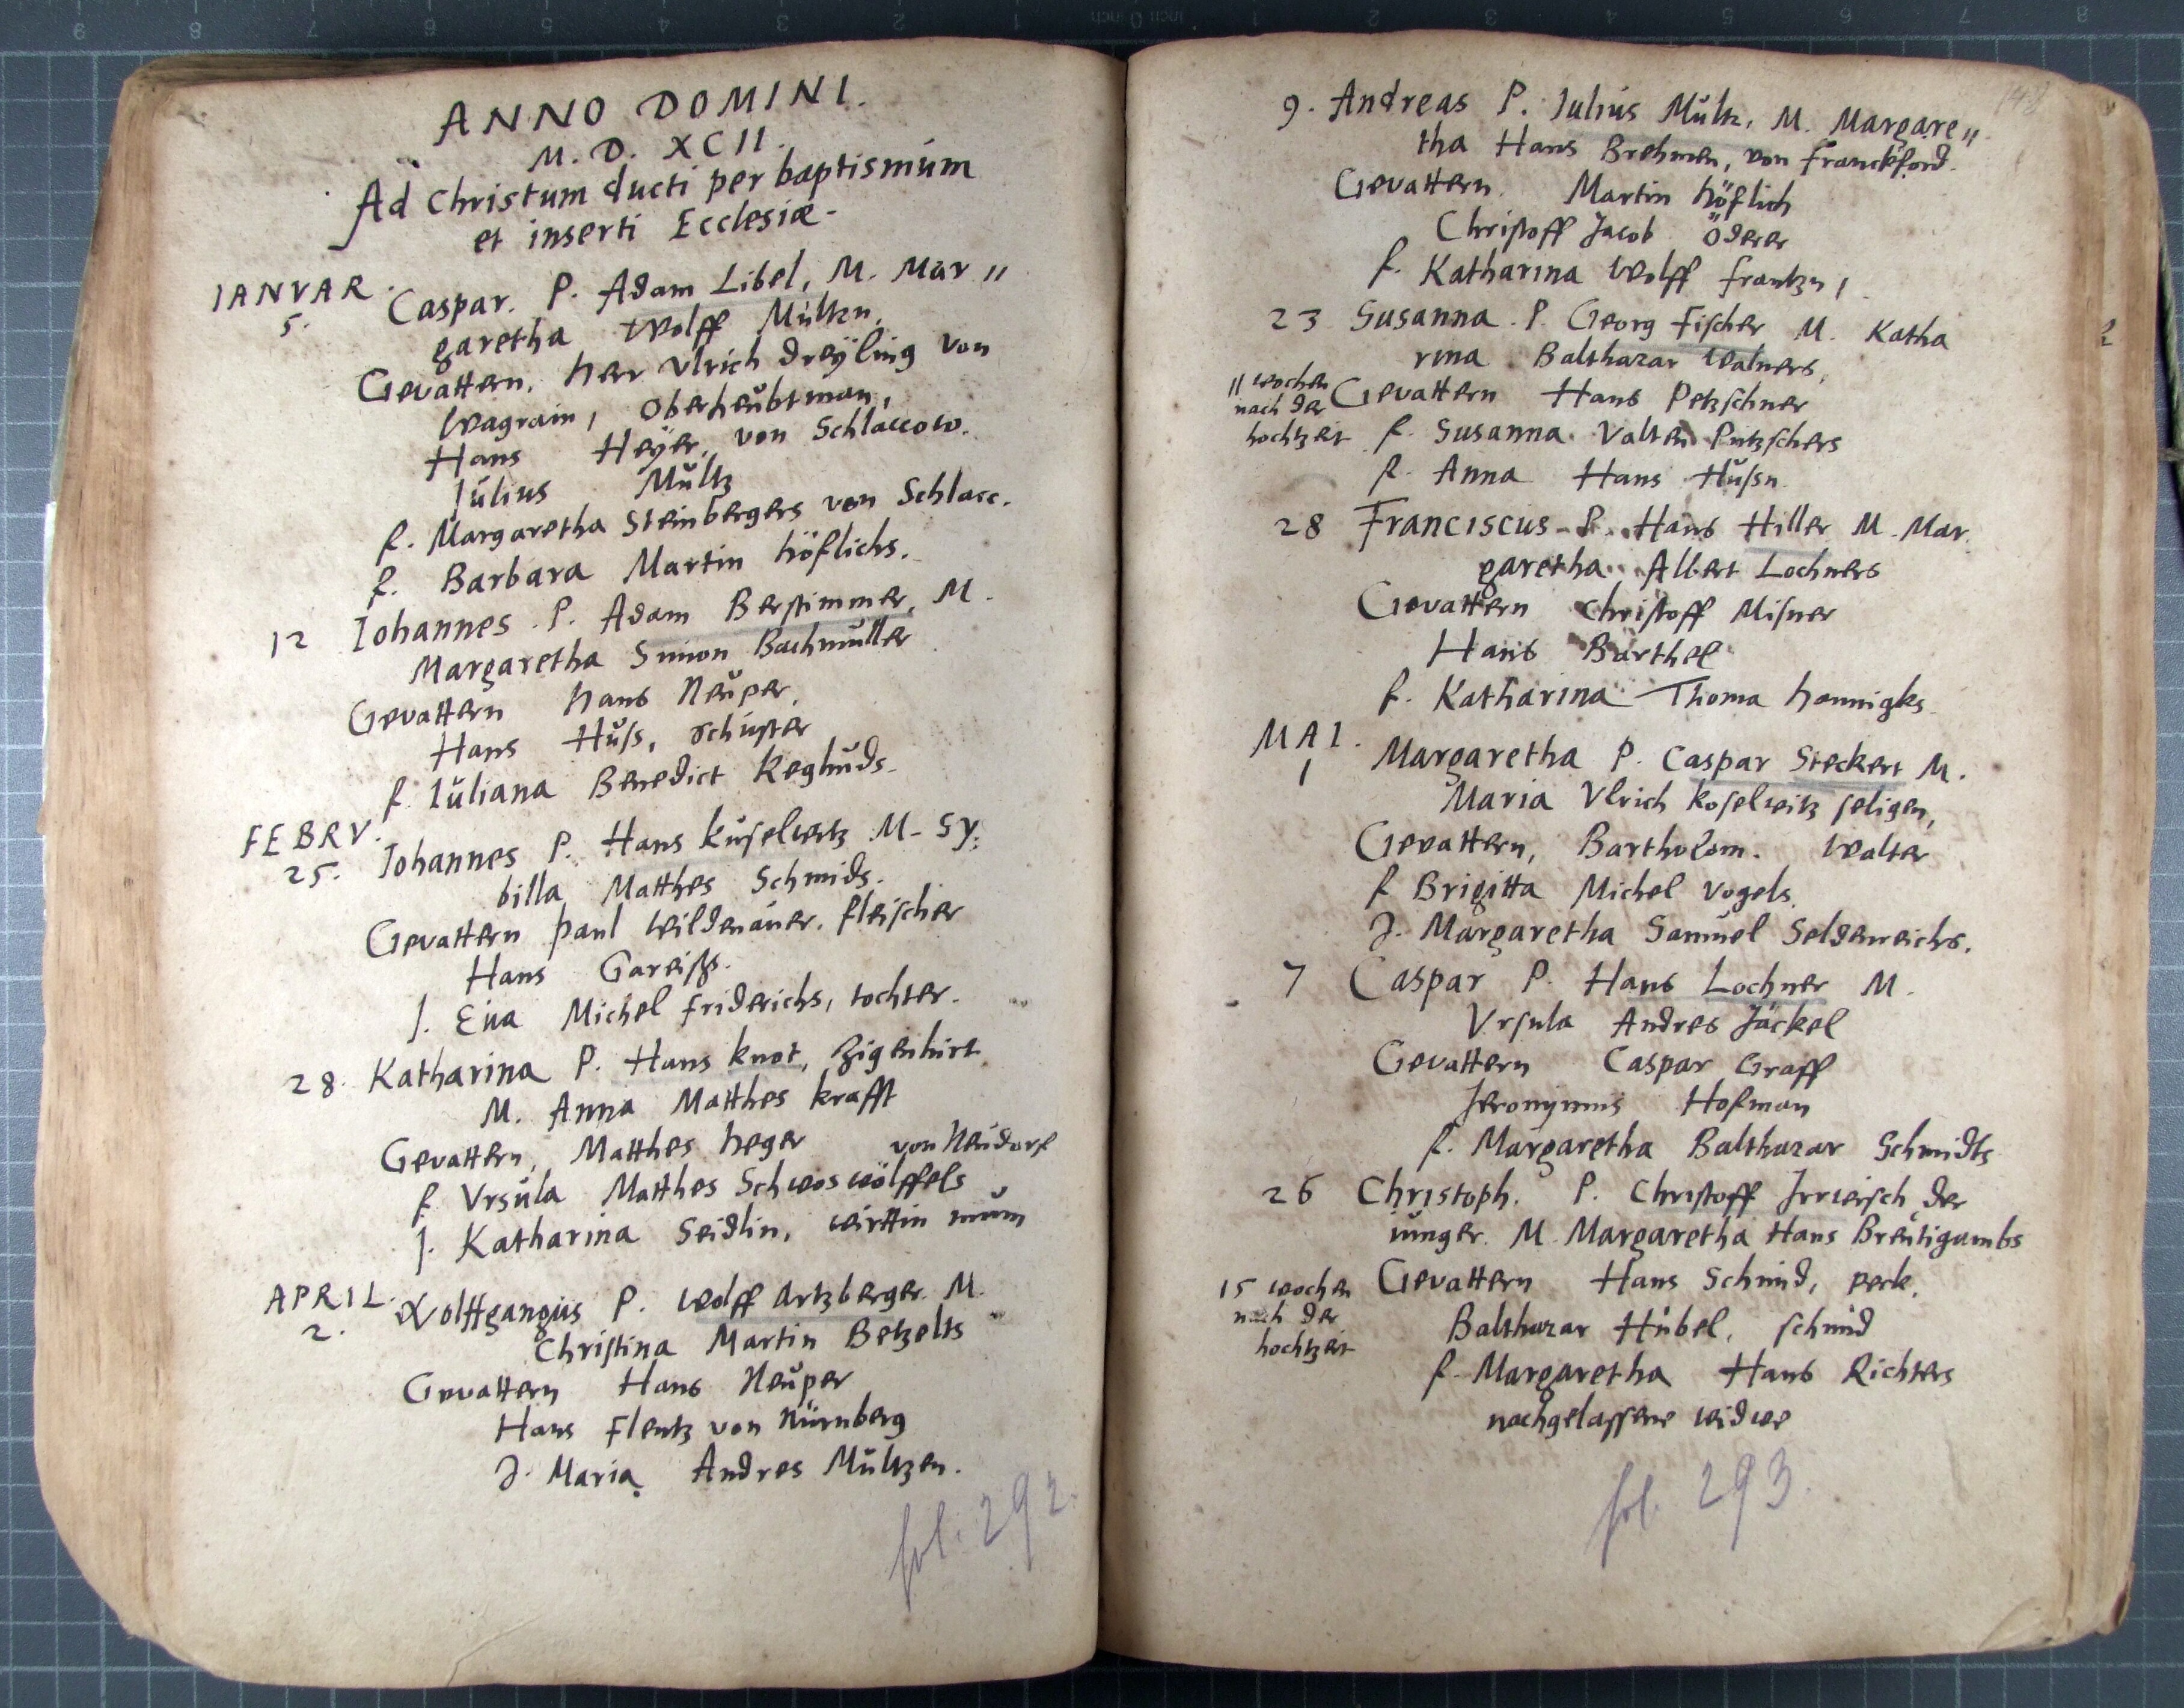 ANNO DOMINI.
M. D. XCII.
Ad Christum ducti per baptismum
et inserti Ecclesiæ.
IANVAR.
5.
Caspar. P. Adam Libel, M. Mar〃
garetha Wolff Mültzn,
Gevattern, herr Vlrich Dreÿling von
Wagrain, Oberheubtman,
Hans Heÿer, von Schlaccow.
Julius Multz
f. Margaretha Steinbergers von Schlacc.
f. Barbara Martin höflichs.
12 Johannes. P. Adam Berstimmer, M.
Margaretha Simon Bachmuller
Gevattern hans Neuper,
Hans Huſs, schuster
f. Iuliana Benedict Keghuds.
FEBRV.
25. Johannes P. Hans kuſelwitz M. Sy:
billa Matthes Schmids.
Gevattern paul Wildenauer, fleischer
Hans Gareiſs.
J. Eua Michel Friderichs, tochter.
28. Katharina P. Hans knot, Zigenhirt
M. Anna Matthes krafft
Gevattern, Matthes heger von Neudorf
f. Vrsula Matthes Schwoswölffels
J. Katharina Seidlin, wirttin mum
APRIL.
2.
Wolffgangus P. Wolff Artzberger. M.
Christina Martin Betzelts
Gevattern Hans Neuper
Hans Flentz von Nürnberg
J. Maria Andres Multzen.
fol. 292.
9. Andreas P. Iulius Multz, M. Margare〃
tha Hans Brehmen, von Franckford.
Gevattern. Martin höflich
Christoff Jacob Öderer
f. Katharina Wolff frantzn,
23 Susanna. P. Georg Fischer M. Katha
rina Balthazar Walners,
11 wochen
nach der
hochtzeit
Gevattern Hans Petzschner
f. Susanna. Valten Putzschers
f. Anna Hans Huſsn
28 Franciscus. P. Hans Hiller M. Mar.
garetha Albert Lochners
Gevattern Christoff Miſner
Hans Barthel
f. Katharina Thoma hennigks
MAI.
1
Margaretha P. Caspar Steckert M.
Maria Vlrich koſelwitz ſeligen,
Gevattern, Bartholom. Walter
f Brigitta Michel Vogels.
J. Margaretha Samuel Seldenreichs.
7 Caspar P. Hans Lochner M.
Vrſula Andres Jäckel
Gevattern Caspar Graff
Jeronymus Hofman
f. Margaretha Balthazar Schmidts
26 Christoph. P. Christoff Irrweisch der
iunger. M. Margaretha Hans Breutigambs
15 wochen
nach der
hochtzeit
Gevattern Hans Schmid, peck.
Balthazar Hübel, schmid
f. Margaretha Hans Richters
nachgelaſſene widwe
fol. 293.